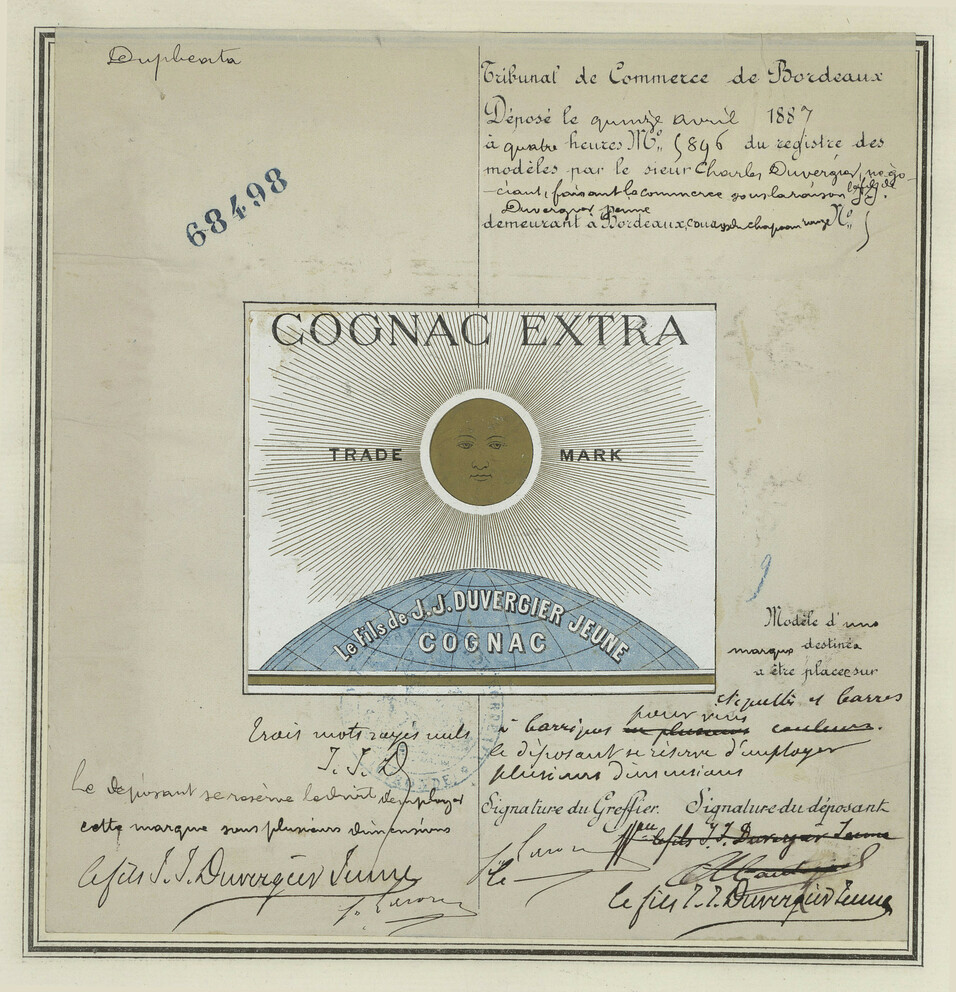 Duplicata
Tribunal de Commerce de Bordeaux
Déposé le quinze avril 1887
à quatre heures M. N° 5896 du registre des
modèles par le sieur Charles Duvergier, négo-
-ciant, faisant le commerce sous la raison le fils de J.J.
Duvergier jeune
demeurant à Bordeaux, chapeau rouge N° 5
68498
COGNAC EXTRA
TRADE MARK
Le Fils de J.J. DUVERGIER JEUNE
COGNAC
Modèle d'une
marque destinée
a être placée sur
etiquettes et barres
à barriques en plusieurs pour vins couleurs.
le déposant se réserve d'employer
plusieurs dimensions
Trois mots rayés nuls
J. J. D
Le déposant se reserve le droit d'employer
cette marque sous plusieurs dimensions
le fils J. J. Duvergier Jeune
Signature du Greffier. Signature du déposant
le fils J. J. Duvergier Jeune
le fils J. J. Duvergier Jeune